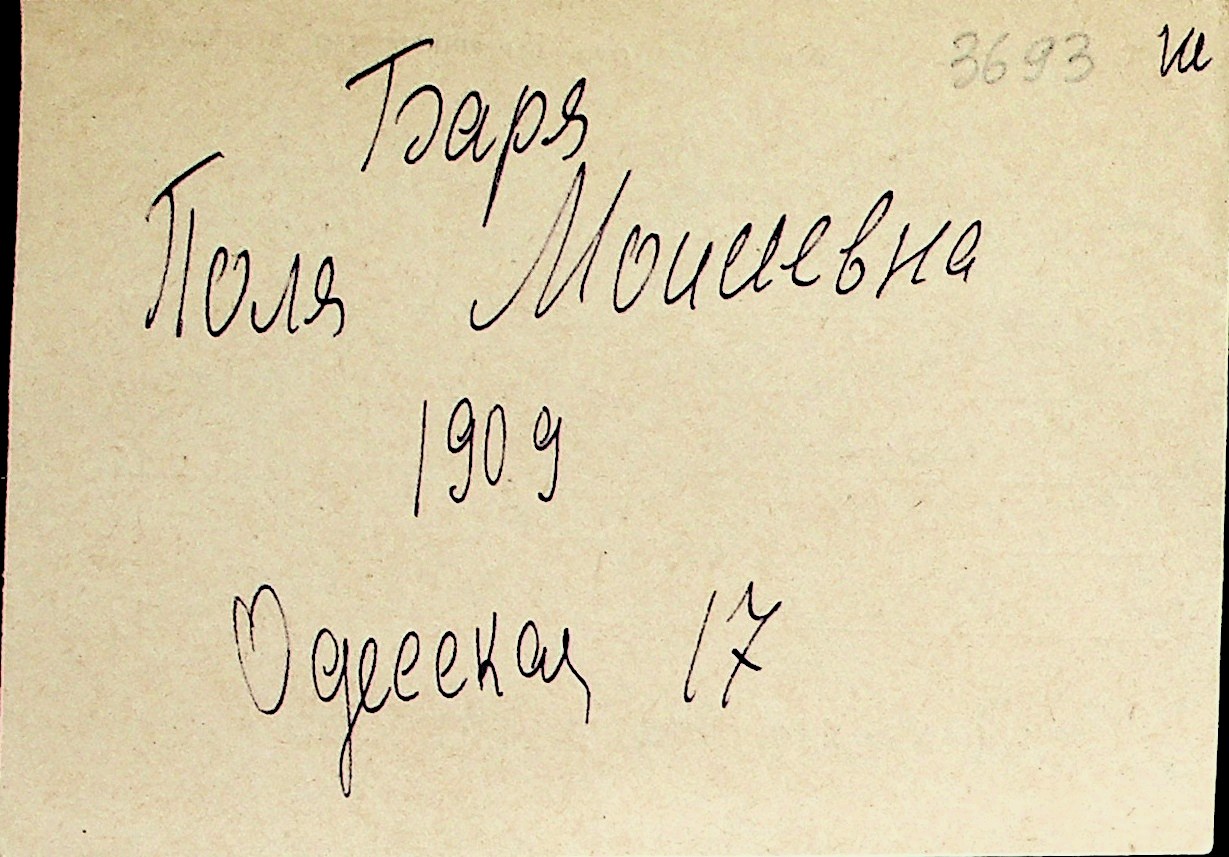 3693
Баря
Поля Моишевна
1909
Одесская 17